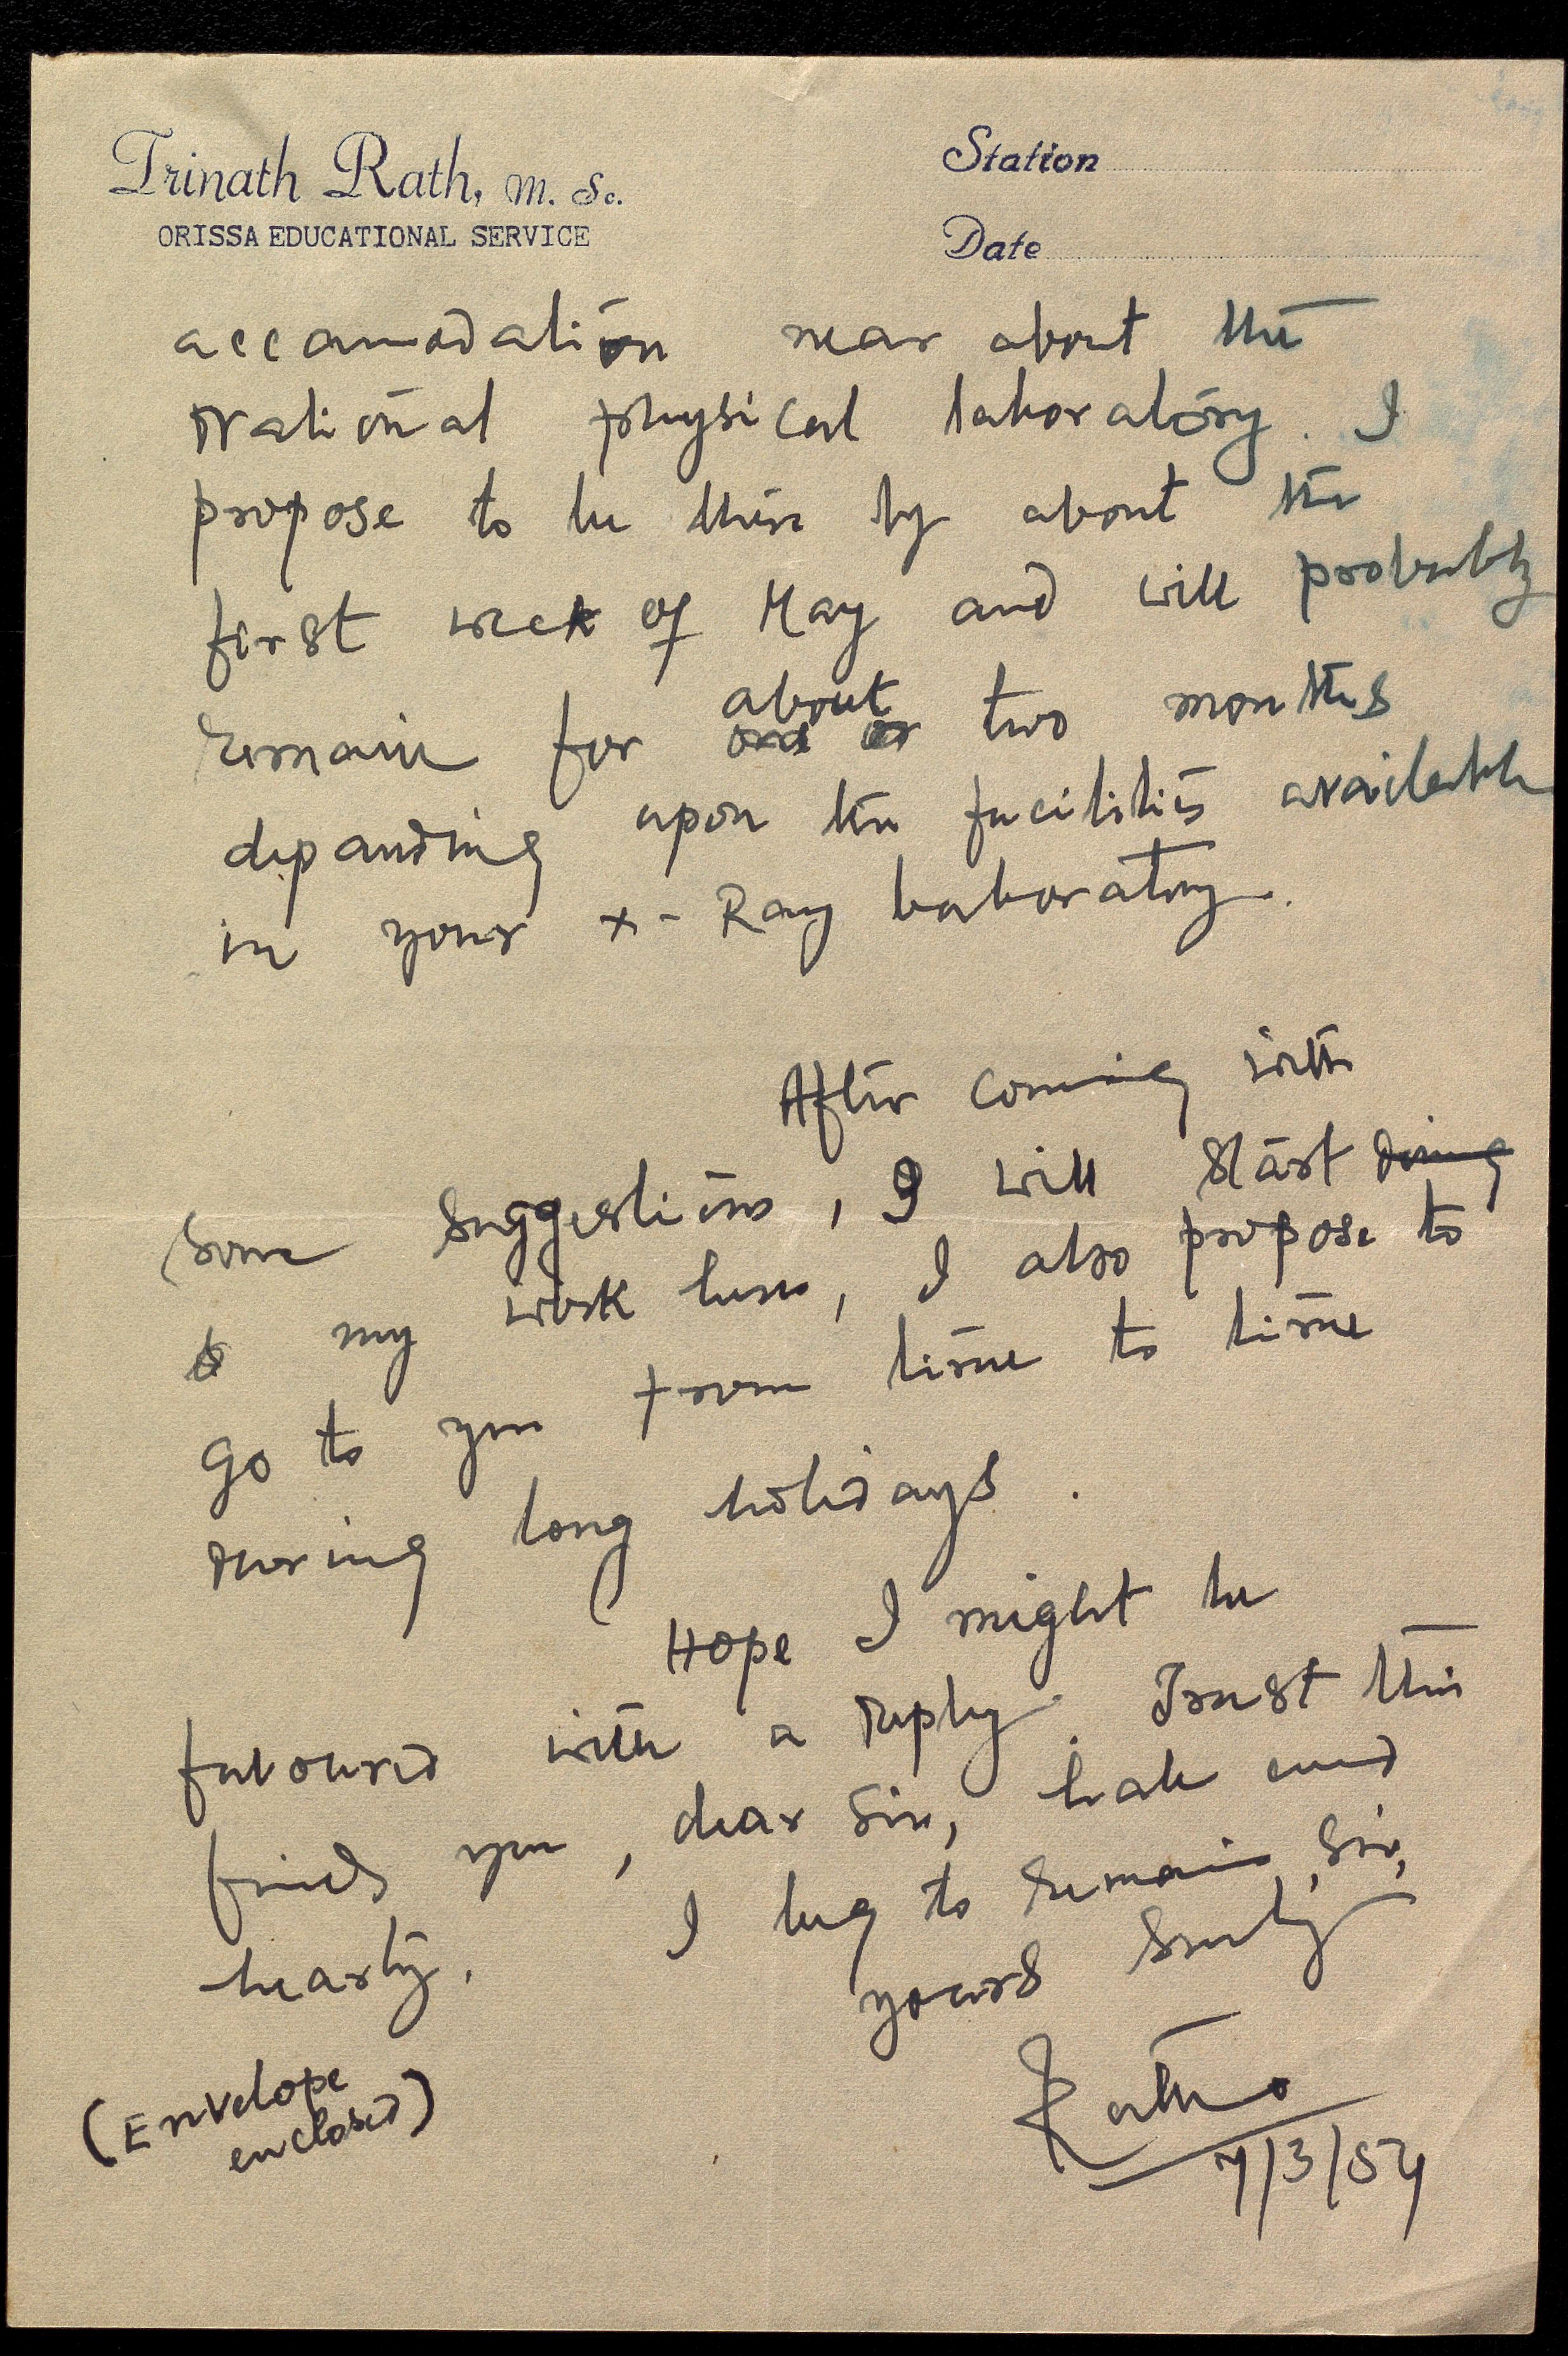 Trinath Rath, M. Sc.
ORISSA EDUCATIONAL SERVICE
Station
Date
accamodation near about the
National physical laboratory. I
propose to be there by about the
first week of May and will probably
remain for about two months
depanding upon the facilities available
in your x-Ray laboratory.
After coming with
some suggestions, I will start doing
my work here, I also propose to
go to you from time to time
During long holidays.
Hope I might be
favoured with a reply. Trust this
finds you, dear Sir, hale and
hearty. I beg to remain, Sir,
yours
Ratho
7/3/54
(Envelope
enclosed)